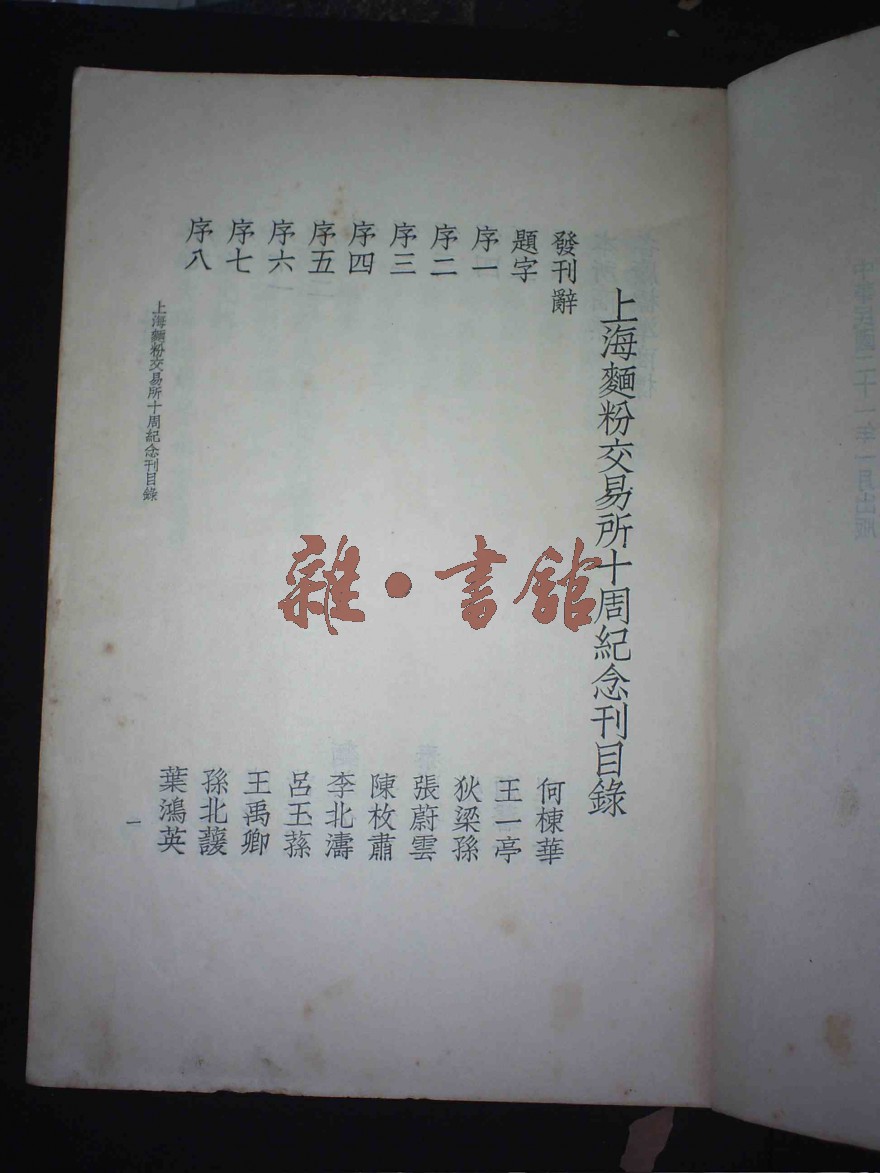 中華民國二十一年一月出版
上海麵粉交易所十周紀念刊目錄
發刊辭 何棟華
題字 王一亭
序一 狄梁孫
序二 張蔚雲
序三 陳枚肅
序四 李北濤
序五 呂玉蓀
序六 王禹卿
序七 孫北護
序八 葉鴻英
上海麵粉交易所十周紀念刊目錄
一
雜·書館